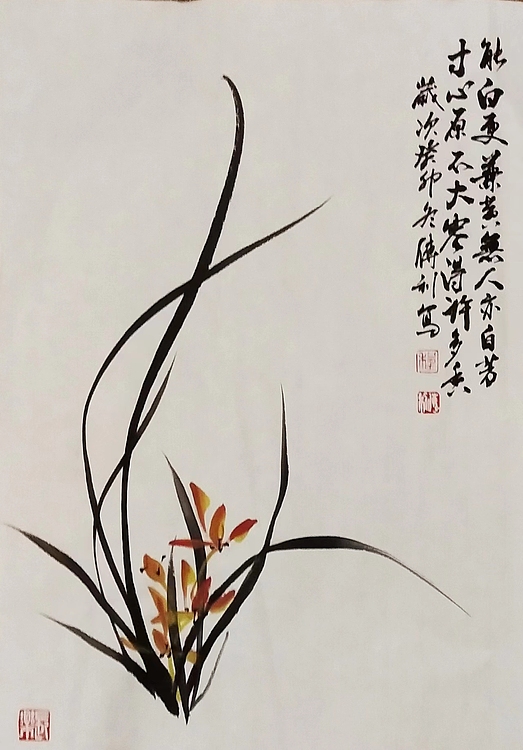 能白更兼黄無人亦自芳
寸心原不大容得許多香
歲次癸卯冬勝利寫